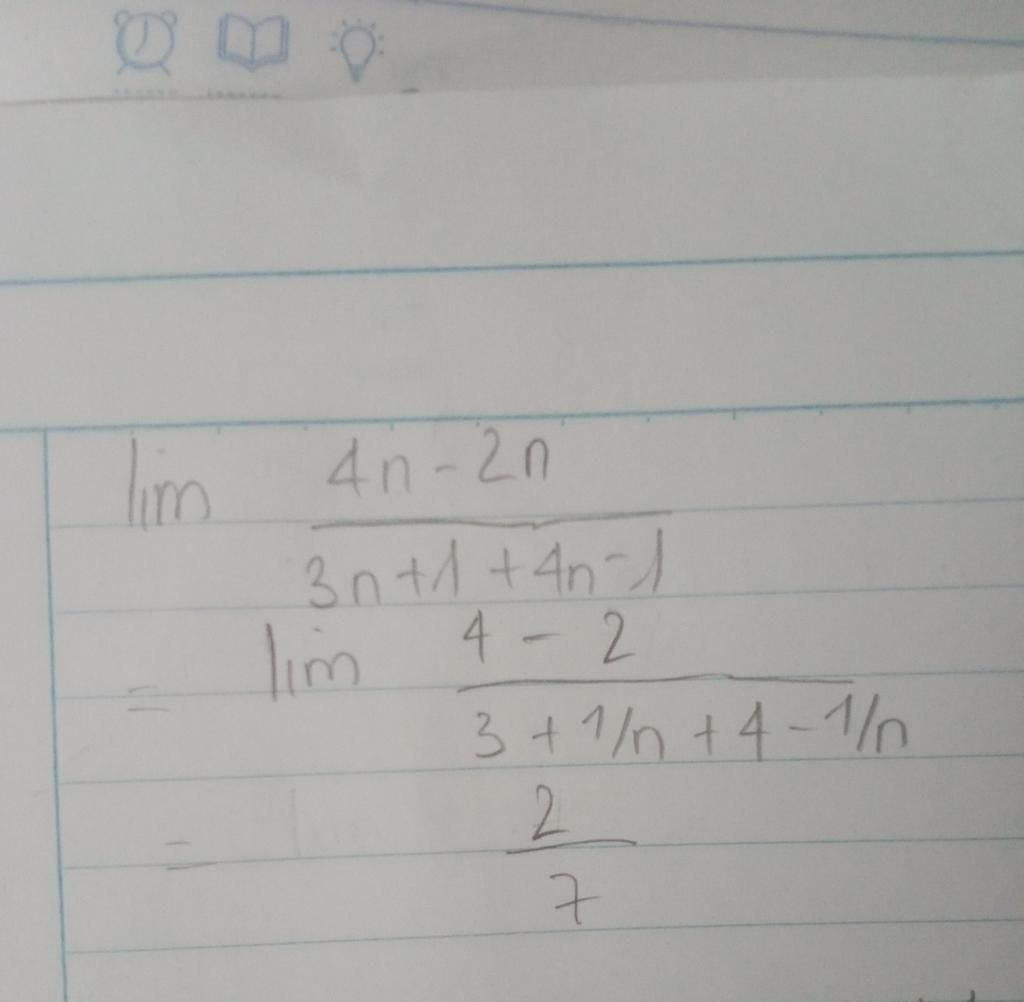 lim 4n - 2n
3n + 1 + 4n - 1
= lim 4 - 2
3 + 1/n + 4 - 1/n
= 2
7